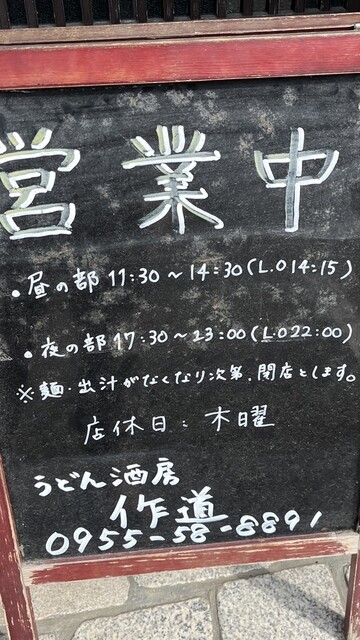 営業中
・昼の部 11:30～14:30(L.O14:15)
・夜の部 17:30～23:00(L.O22:00)
※麺・出汁がなくなり次第、閉店とします。
店休日：木曜
うどん酒房
作道
0955-58-8891